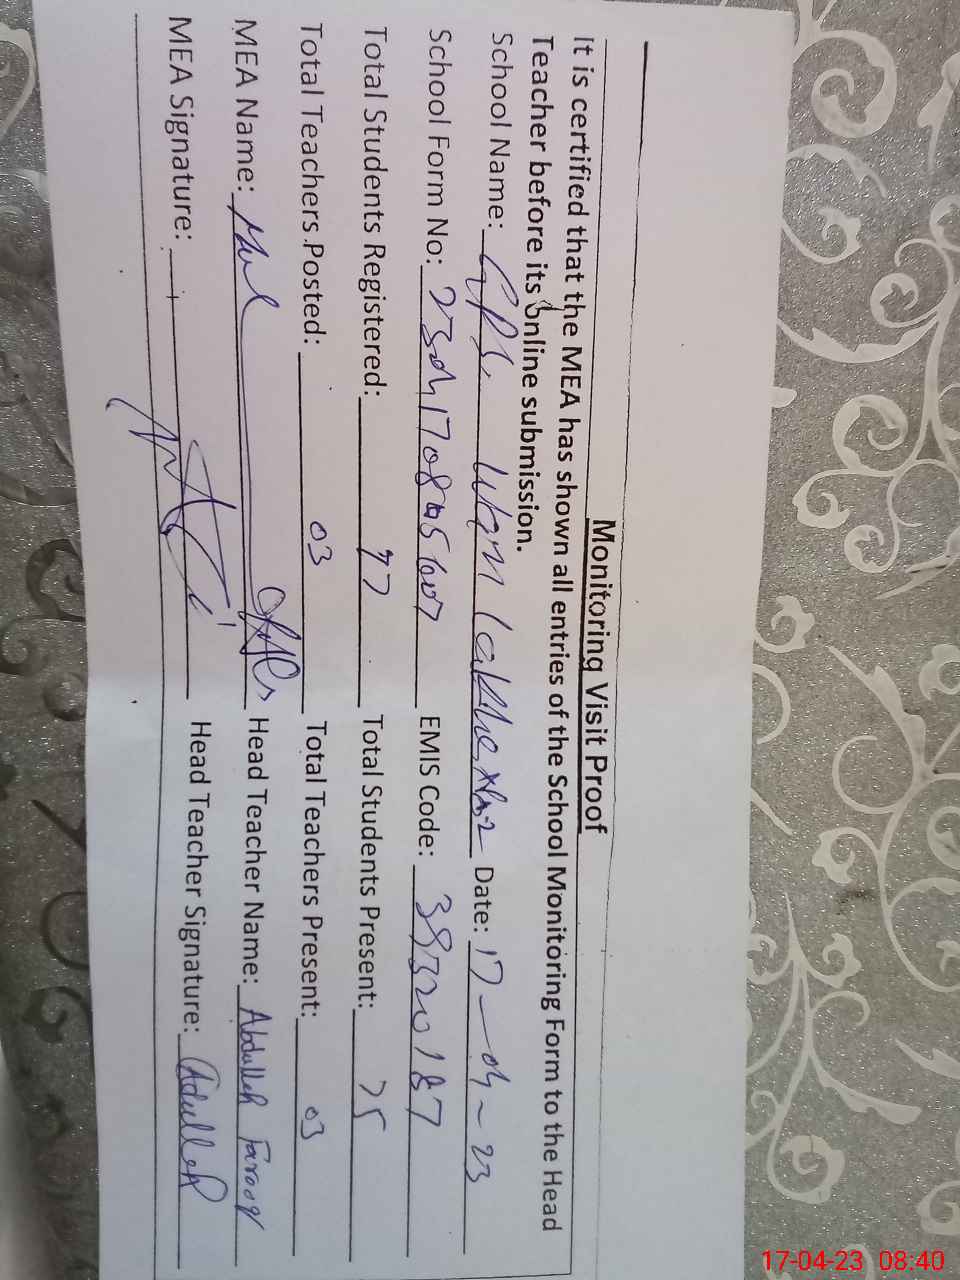 Monitoring Visit Proof
It is certified that the MEA has shown all entries of the School Monitoring Form to the Head
Teacher before its online submission.
School Name: GPS, Date: 17-04-23
School Form No: EMIS Code: 38320187
Total Students Registered: 97 Total Students Present: 75
Total Teachers Posted: 03 Total Teachers Present: 03
MEA Name: Head Teacher Name: Abdullah Farooq
MEA Signature: Head Teacher Signature: Abdullah
17-04-23 08:40